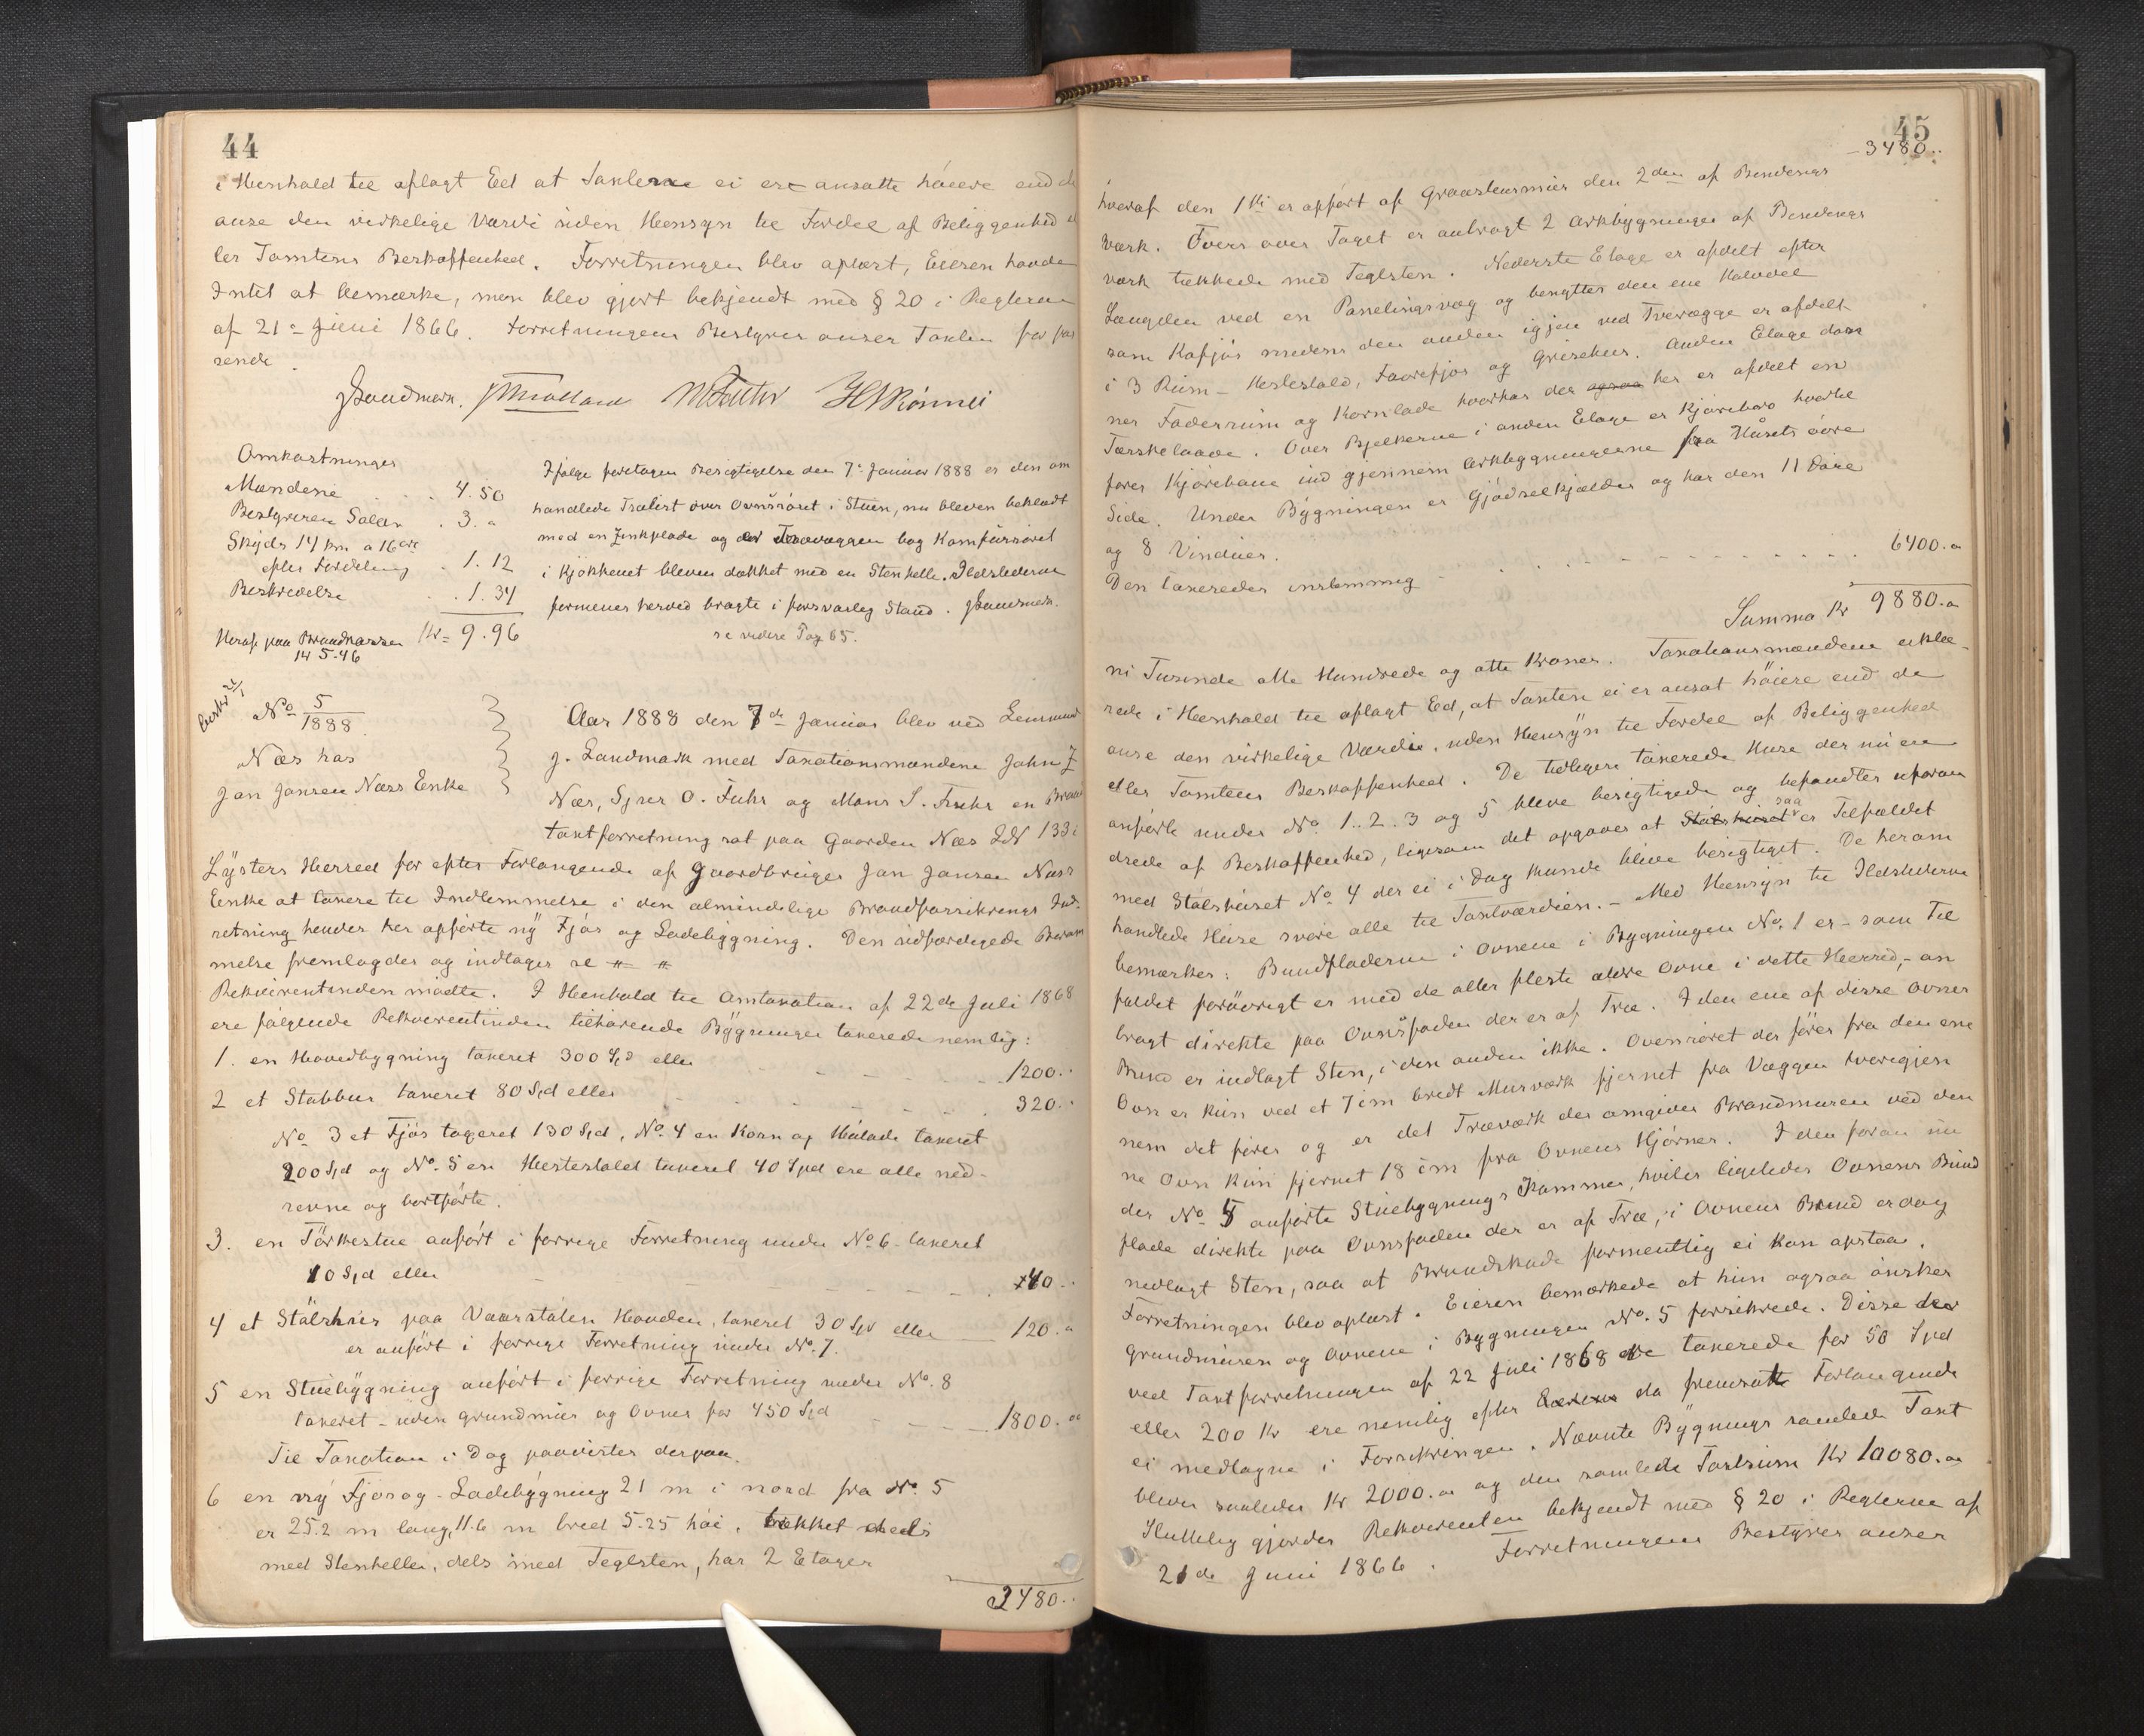 44
i Henhold til aflagt Eed at Taxterne ei ere ansatte høiere end de
anse den virkelige Værdi uden Hensyn til Fordel af Beliggenhed el
ler Tomtens Beskaffenhed. Forretningen blev oplæst, Eieren havde
Intet at bemærke, men blev gjort bekjendt med § 20 i Reglerne
af 21de Juni 1866. Forretningens Bestyrer anser Taxten for pas
sende.
JLandmark.
Omkostninger
Mændene 4.50
Bestyreren Salær . 3. "
Skyds 14 km a 16 øre
efter Fordeling . 1. 12
Beskrivelse . . 1. 34
Kr= 9.96
Heraf paa Brandkassen
14 5.46
Ifølge foretagen Besigtigelse den 7de Januar 1888 er den om
handlede Trælist over Ovnsrøret i Stuen, nu bleven beklædt
med en Zinkplade og er Trævæggen bag Komfurrøret
i Kjøkkenet bleven dækket med en Stenhelle. Ildstederne
formenes herved bragte i forsvarlig Stand. JLandmark.
se videre Pag 65.
No 5/1888.
Næs hos
Jan Jansen Næss Enke
Aar 1888 den 7de Januar blev ved Lensmand
J. Landmark med Taxationsmændene John J
Næs, Sjur O. Fuhr og Mons S. Fuhr en Brand
taxtforretning sat paa Gaarden Næs LN 133 i
Lysters Herred for efter Forlangende af Gaardbruger Jan Jansen Næss
Enke at taxere til Indlemmelse i den almindelige Brandforsikrings Ind-
retning hendes her opførte ny Fjøs og Ladebygning. Den udfærdigede Beram
melse fremlagdes og indtages se # #
Rekvirentinden mødte. I Henhold til Omtaxation af 22de Juli 1868
ere følgende Rekvirentinden tilhørende Bygninger taxerede nemlig:
1. en Hovedbygning taxeret 300 Spd eller 1200. "
2 et Stabbur taxeret 80 Spd eller 320. "
No 3 et Fjøs taxeret 130 Spd, No 4 en Korn og Hølade taxeret
200 Spd og No 5 en Hestestald taxeret 40 Spd ere alle ned-
revne og bortførte.
3. en Tørkestue anført i forrige Forretning under No 6 taxeret
10 Spd eller 40 "
4 et Stølshus paa Vaarstølen Houden, taxeret 30 Spd eller 120. "
er anført i forrige Forretning under No. 7.
5 en Stuebygning anført i forrige Forretning under No. 8
taxeret - uden grundmur og Ovner for 450 Spd 1800. "
Til Taxation i Dag paavistes derpaa.
6 en ny Fjøs og Ladebygning 21 m i nord fra No. 5
er 25.2 m lang, 11.6 m bred 5.25 høi, tækket dels
med Stenheller, dels med Teglsten, har 2 Etager
3480. "
45
3480. "
hvoraf den 1ste er opført af Graastensmur den 2den af Bindings
værk. Tvers over Taget er anbragt 2 Arkbygninger af Bindings
værk tækkede med Teglsten. Nederste Etage er afdelt efter
Længden ved en Panelingsvæg og benyttes den ene Halvdel
som Kofjøs medens den anden igjen ved Tvervægge er afdelt
i 3 Rum - Hestestald, Faarefjøs og Grisehus. Anden Etage dan
ner Foderrum og Kornlade hvorhos der ogsaa her er afdelt en
Tærskelaave. Over Bjelkerne i anden Etage er Kjørebro hvortil
fører Kjørebane ind gjennem Arkbygningerne fra Husets øvre
Side. Under Bygningen er Gjødselkjælder og har den 11 Døre
og 8 Vinduer.
Den taxeredes enstemmig 6400. "
Summa Kr 9880. "
ni Tusinde otte Hundrede og otti Kroner. Taxationsmændene erklæ-
rede i Henhold til aflagt Ed, at Taxten ei er ansat høiere end de
anse den virkelige Værdie, uden Hensyn til Fordel af Beliggenhed
eller Tomtens Beskaffenhed. De tidligere taxerede Huse der nu ere
anførte under No. 1. 2. 3 og 5 bleve besigtigede og befandtes uforan
drede af Beskaffenhed, ligesom det opgaves at saa er Tilfældet
med Stølshuset No 4 der ei i Dag kunde blive besigtiget. De herom
handlede Huse svare alle til Taxtværdien. - Med Hensyn til Ildstederne
bemærkes: Bundpladerne i Ovnene i Bygningen No. 1 er - som Til
fældet forøvrigt er med de aller fleste ældre Ovne i dette Herred, - an
bragt direkte paa Ovnsfoden der er af Træ. I den ene af disse Ovner
Bund er indlagt Sten, i den anden ikke. Ovnsrøret der fører fra den ene
Ovn er kun ved et 7 cm bredt Murværk fjernet fra Væggen hvorigjen
nem det føres og er det Træværk der omgiver Brandmuren ved den
ne Ovn kun fjernet 18 cm fra Ovnens Hjørner. I den foran un
der No 5 anførte Stuebygnings Kammer, hviler ligeledes Ovnens Bund
plade direkte paa Ovnsfoden der er af Træ, i Ovnens Bund er dog
nedlagt Sten, saa at Brandskade formentlig ei kan opstaa.
Forretningen blev oplæst. Eieren bemærkede at hun ogsaa ønsker
grundmuren og Ovnene i Bygningen No. 5 forsikrede. Disse der
ved Taxtforretningen af 22 Juli 1868 ere taxerede for 50 Spd
eller 200 Kr ere nemlig efter Eierens da fremsatte Forlangende
ei medtagne i Forsikringen. Nævnte Bygnings samlede Taxt
bliver saaledes Kr 2000. " og den samlede Taxtsum Kr 10080. "
Sluttelig gjordes Rekvirenten bekjendt med § 20 i Reglerne af
21de Juni 1866. Forretningens Bestyrer anser